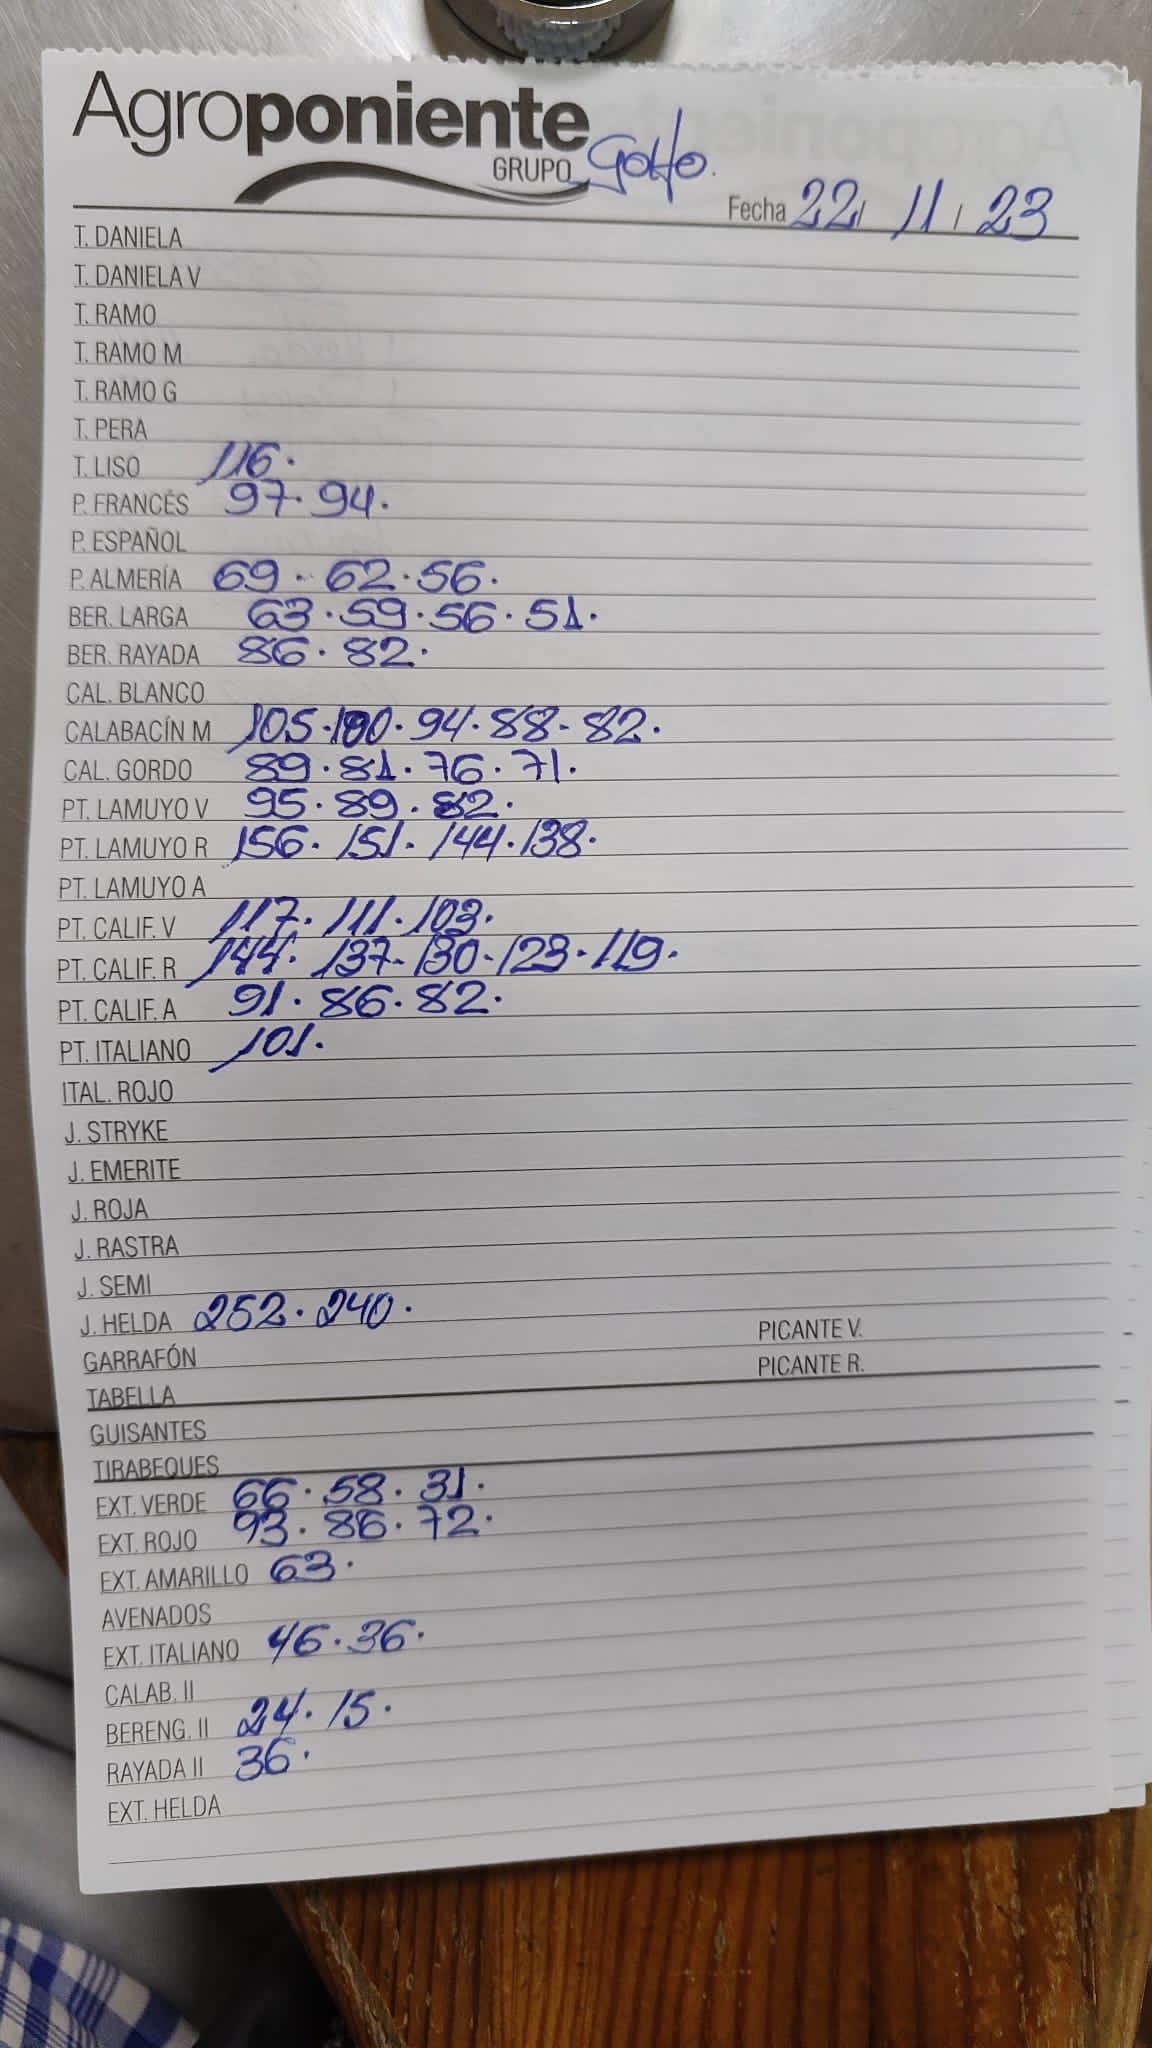 Agroponiente
GRUPO Golfo.
Fecha 22/ 11 / 23
T. DANIELA
T. DANIELA V
T. RAMO
T. RAMO M
T. RAMO G
T. PERA
T. LISO 116.
P. FRANCÉS 97. 94.
P. ESPAÑOL
P. ALMERÍA 69. 62. 56.
BER. LARGA 63. 59. 56. 51.
BER. RAYADA 86. 82.
CAL. BLANCO
CALABACÍN M 105. 100. 94. 88- 82.
CAL. GORDO 89. 81. 76. 71.
PT. LAMUYO V 95. 89. 82.
PT. LAMUYO R 156. 151. 144. 138.
PT. LAMUYO A
PT. CALIF. V 117. 111. 103.
PT. CALIF. R 144. 137- 130- 123. 119.
PT. CALIF. A 91. 86. 82.
PT. ITALIANO 101.
ITAL. ROJO
J. STRYKE
J. EMERITE
J. ROJA
J. RASTRA
J. SEMI
J. HELDA 252. 240.
GARRAFÓN PICANTE V.
TABELLA PICANTE R.
GUISANTES
TIRABEQUES
EXT. VERDE 66. 58. 31.
EXT. ROJO 93. 86. 72.
EXT. AMARILLO 63.
AVENADOS
EXT. ITALIANO 46. 36.
CALAB. II
BERENG. II 24. 15.
RAYADA II 36.
EXT. HELDA